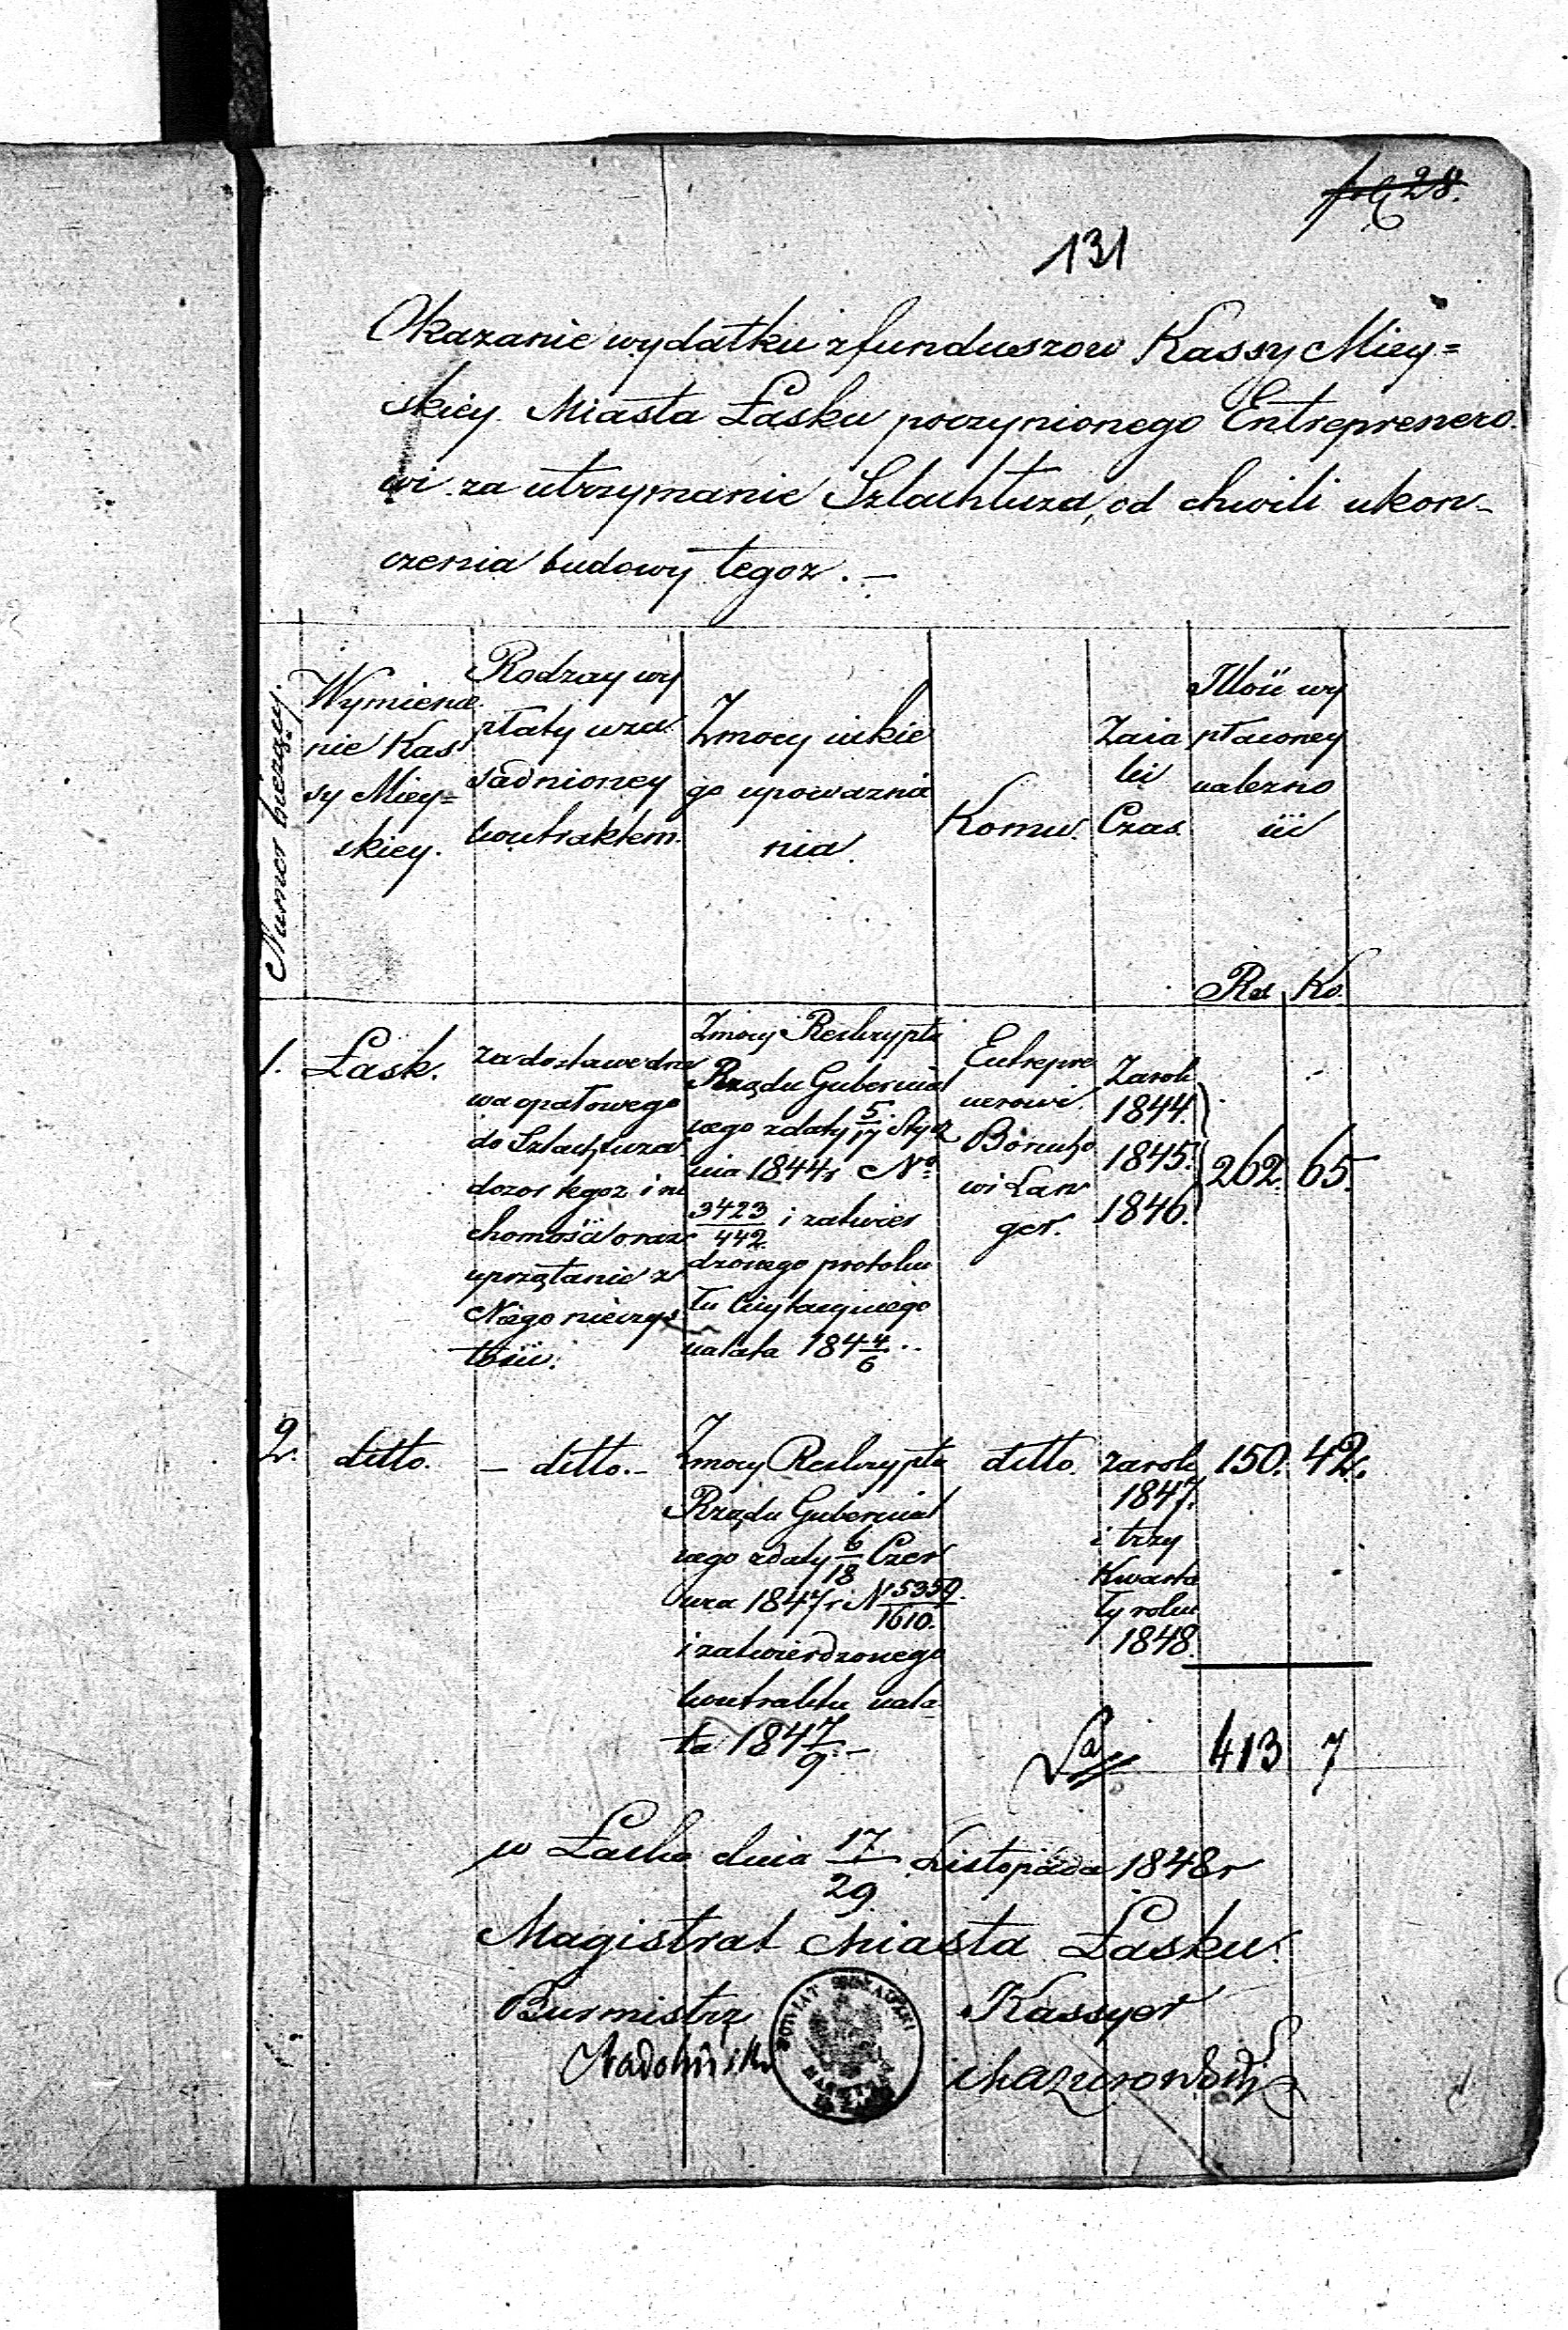 fol 28.
131
Okazanie wydatku z funduszow Kassy Miey=
skiey Miasta Łasku poczynionego Entreprenero-
wi za utrzymanie Szlachtuza, od chwili ukon-
czenia budowy tegoz. —
Numer bieżący.
Wymienie
nie Kas
sy Miey=
skiey.
Rodzay wy
płaty uza
sadnioney
kontraktem.
Zmocy iakie
go upowaznie
nia.
Komu.
Zaia
ki
Czas
Ilośći wy
płaconey
nalezno
ści
Rs Ko.
1. Łask.
za dostawe drze
wa opałowego
do Szlachtuza
dozor tegoz i ru
chomości oraz
uprzątanie z
Niego nieczys
tości.
Zmocy Reskryptu
Rządu Gubernial
nego zdaty 5/17 Stycz
nia 1844 r No
3423/442 i zatwier
dzonego protoku
łu licytacyinego
nalata 184 4/6 ..
Entrepre
nerowi
Borucho
wi Lan
ger.
Zarok
1844.
1845.
1846.
262. 65.
2. ditto.
— ditto. —
Zmocy Reskryptu
Rządu Gubernial
nego zdaty 6/18 Czer
wca 1847 r N 5359/1610.
i zatwierdzonego
kontraktu nala
ta 184 7/9. —
ditto.
zarok
1847.
i trzy
Kwarta
ły roku
1848.
150. 42.
413 7
w Łasku dnia 17/29 Listopada 1848 r
Magistrat Miasta Łasku.
Burmistrz
Kassyer
Mazurowski
POWIAT SIERADZKI